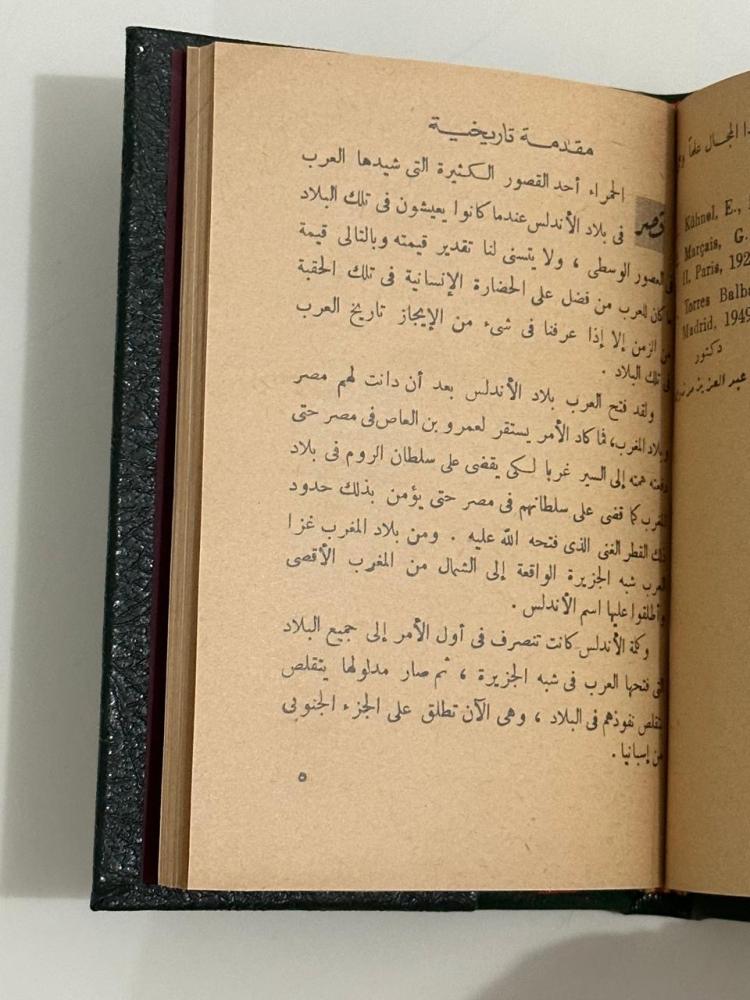 مقدمة تاريخية
قصر الحمراء أحد القصور الكثيرة التى شيدها العرب
فى بلاد الأندلس عندما كانوا يعيشون فى تلك البلاد
فى العصور الوسطى ، ولا يتسنى لنا تقدير قيمته وبالتالى قيمة
ما كان للعرب من فضل على الحضارة الإنسانية فى تلك الحقبة
من الزمن إلا إذا عرفنا فى شىء من الإيجاز تاريخ العرب
فى تلك البلاد .
ولقد فتح العرب بلاد الأندلس بعد أن دانت لهم مصر
وبلاد المغرب، فما كاد الأمر يستقر لعمرو بن العاص فى مصر حتى
دفعته همته إلى السير غربا لكى يقضى على سلطان الروم فى بلاد
المغرب كما قضى على سلطانهم فى مصر حتى يؤمن بذلك حدود
ذلك القطر الغنى الذى فتحه الله عليه . ومن بلاد المغرب غزا
العرب شبه الجزيرة الواقعة إلى الشمال من المغرب الأقصى
وأطلقوا عليها اسم الأندلس .
وكلمة الأندلس كانت تنصرف فى أول الأمر إلى جميع البلاد
التى فتحها العرب فى شبه الجزيرة ، ثم صار مدلولها يتقلص
بتقلص نفوذهم فى البلاد ، وهى الآن تطلق على الجزء الجنوبى
من إسبانيا .
٥
المجال علماً
Kühnel, E.,
Marçais, G.
II. Paris, 192
Torres Balb
Madrid, 1949
دكتور
عبد العزيز